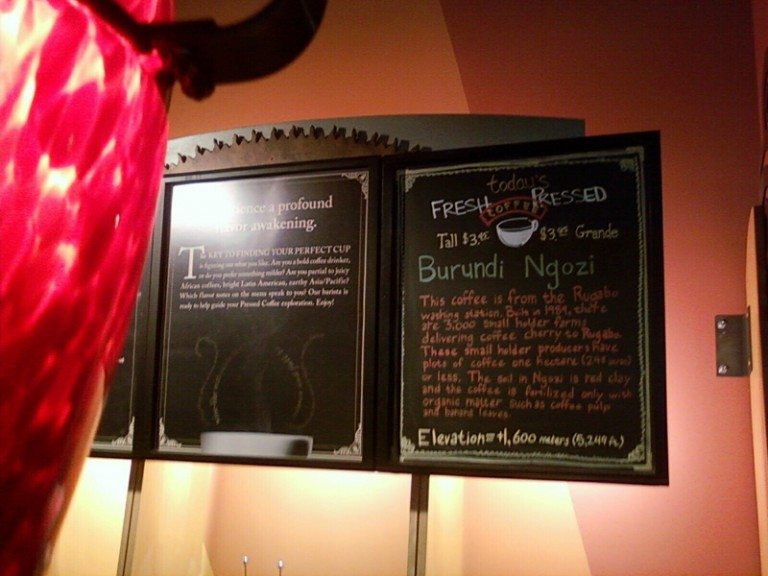 ence a profound
flavor awakening.
THE KEY TO FINDING YOUR PERFECT CUP
is figuring out what you like. Are you a bold coffee drinker,
or do you prefer something milder? Are you partial to juicy
African coffees, bright Latin American, earthy Asia/Pacific?
Which flavor notes on the menu speak to you? Our barista is
ready to help guide your Pressed Coffee exploration. Enjoy!
today's
FRESH PRESSED
COFFEE
Tall $3. $3. Grande
Burundi Ngozi
This coffee is from the Rugabo
washing station. Built in 1989, there
are 3,000 small holder farms
delivering coffee cherry to Rugabo.
These small holder producers have
plots of coffee one hectare
or less. The soil in Ngozi is red clay
and the coffee is fertilized only with
organic matter such as coffee pulp
and banana leaves.
Elevation=+1,600 meters (5,249 ft.)